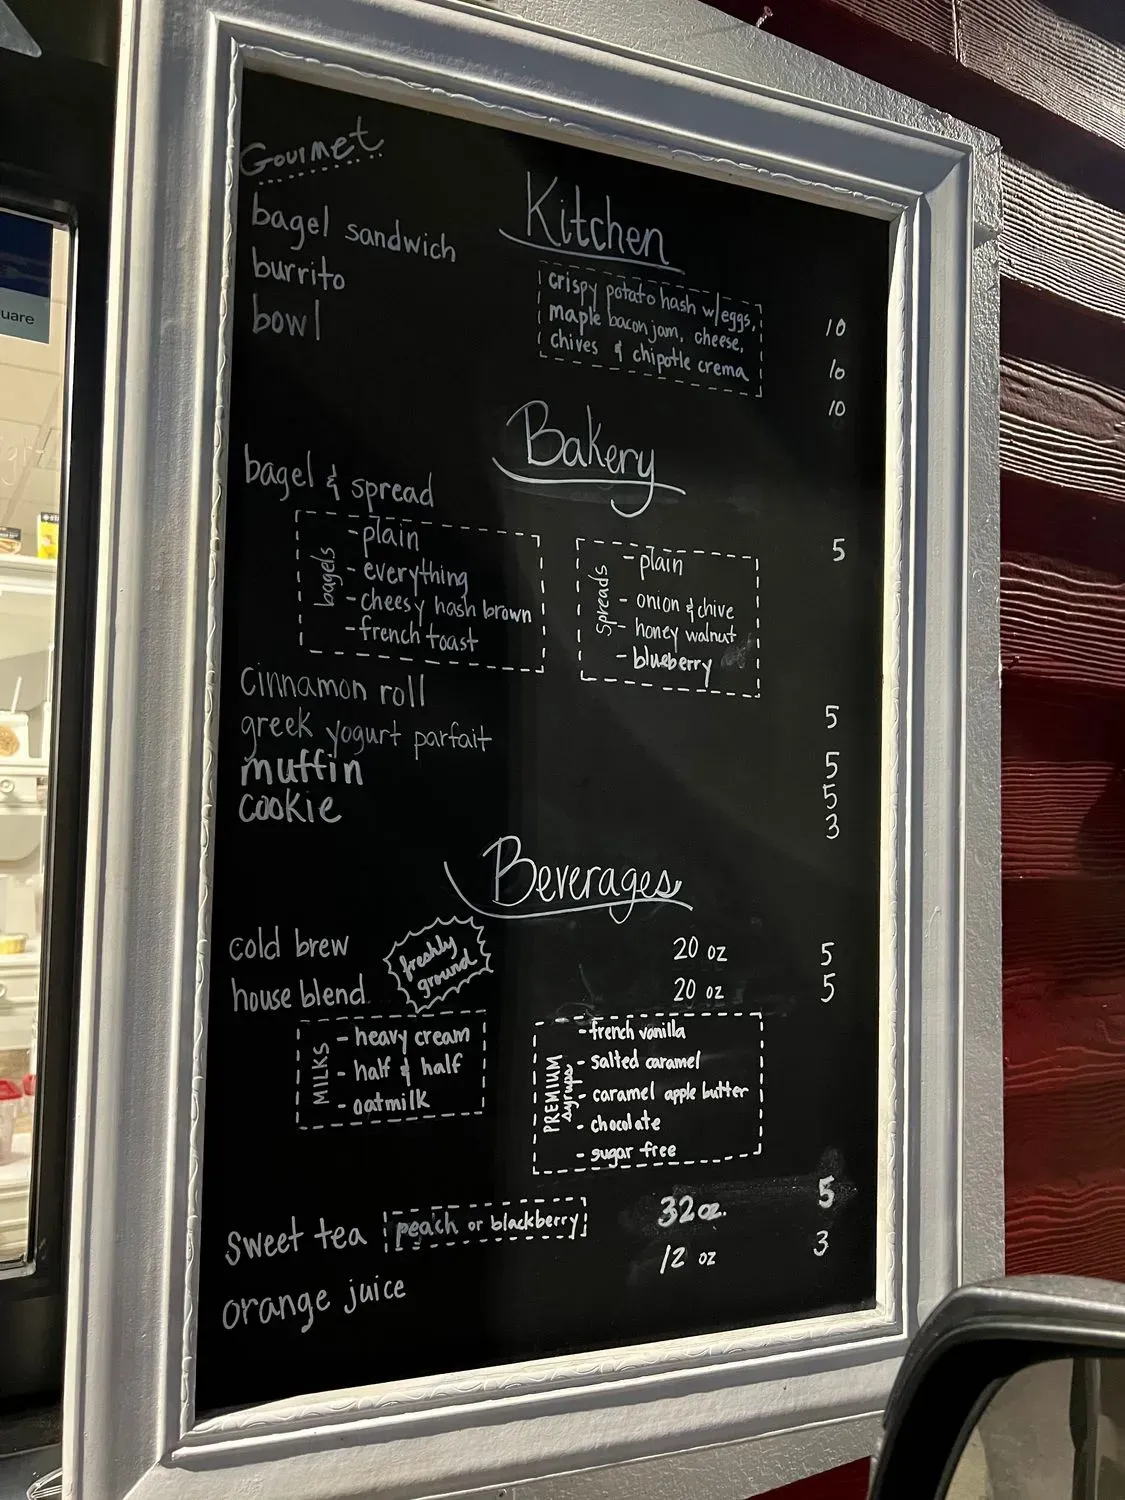 uare
Gourmet
Kitchen
bagel sandwich 10
burrito 10
bowl 10
crispy potato hash w/eggs,
maple bacon jam, cheese,
chives & chipotle crema
Bakery
bagel & spread 5
bagels
- plain
- everything
- cheesy hash brown
- french toast
Spreads
- plain
- onion & chive
- honey walnut
- blueberry
cinnamon roll 5
greek yogurt parfait 5
muffin 5
cookie 3
Beverages
cold brew 20 oz 5
freshly
ground
house blend 20 oz 5
MILKS
- heavy cream
- half & half
- oatmilk
PREMIUM
syrups
- french vanilla
- salted caramel
- caramel apple butter
- chocolate
- sugar free
sweet tea peach or blackberry 32 oz. 5
orange juice 12 oz 3